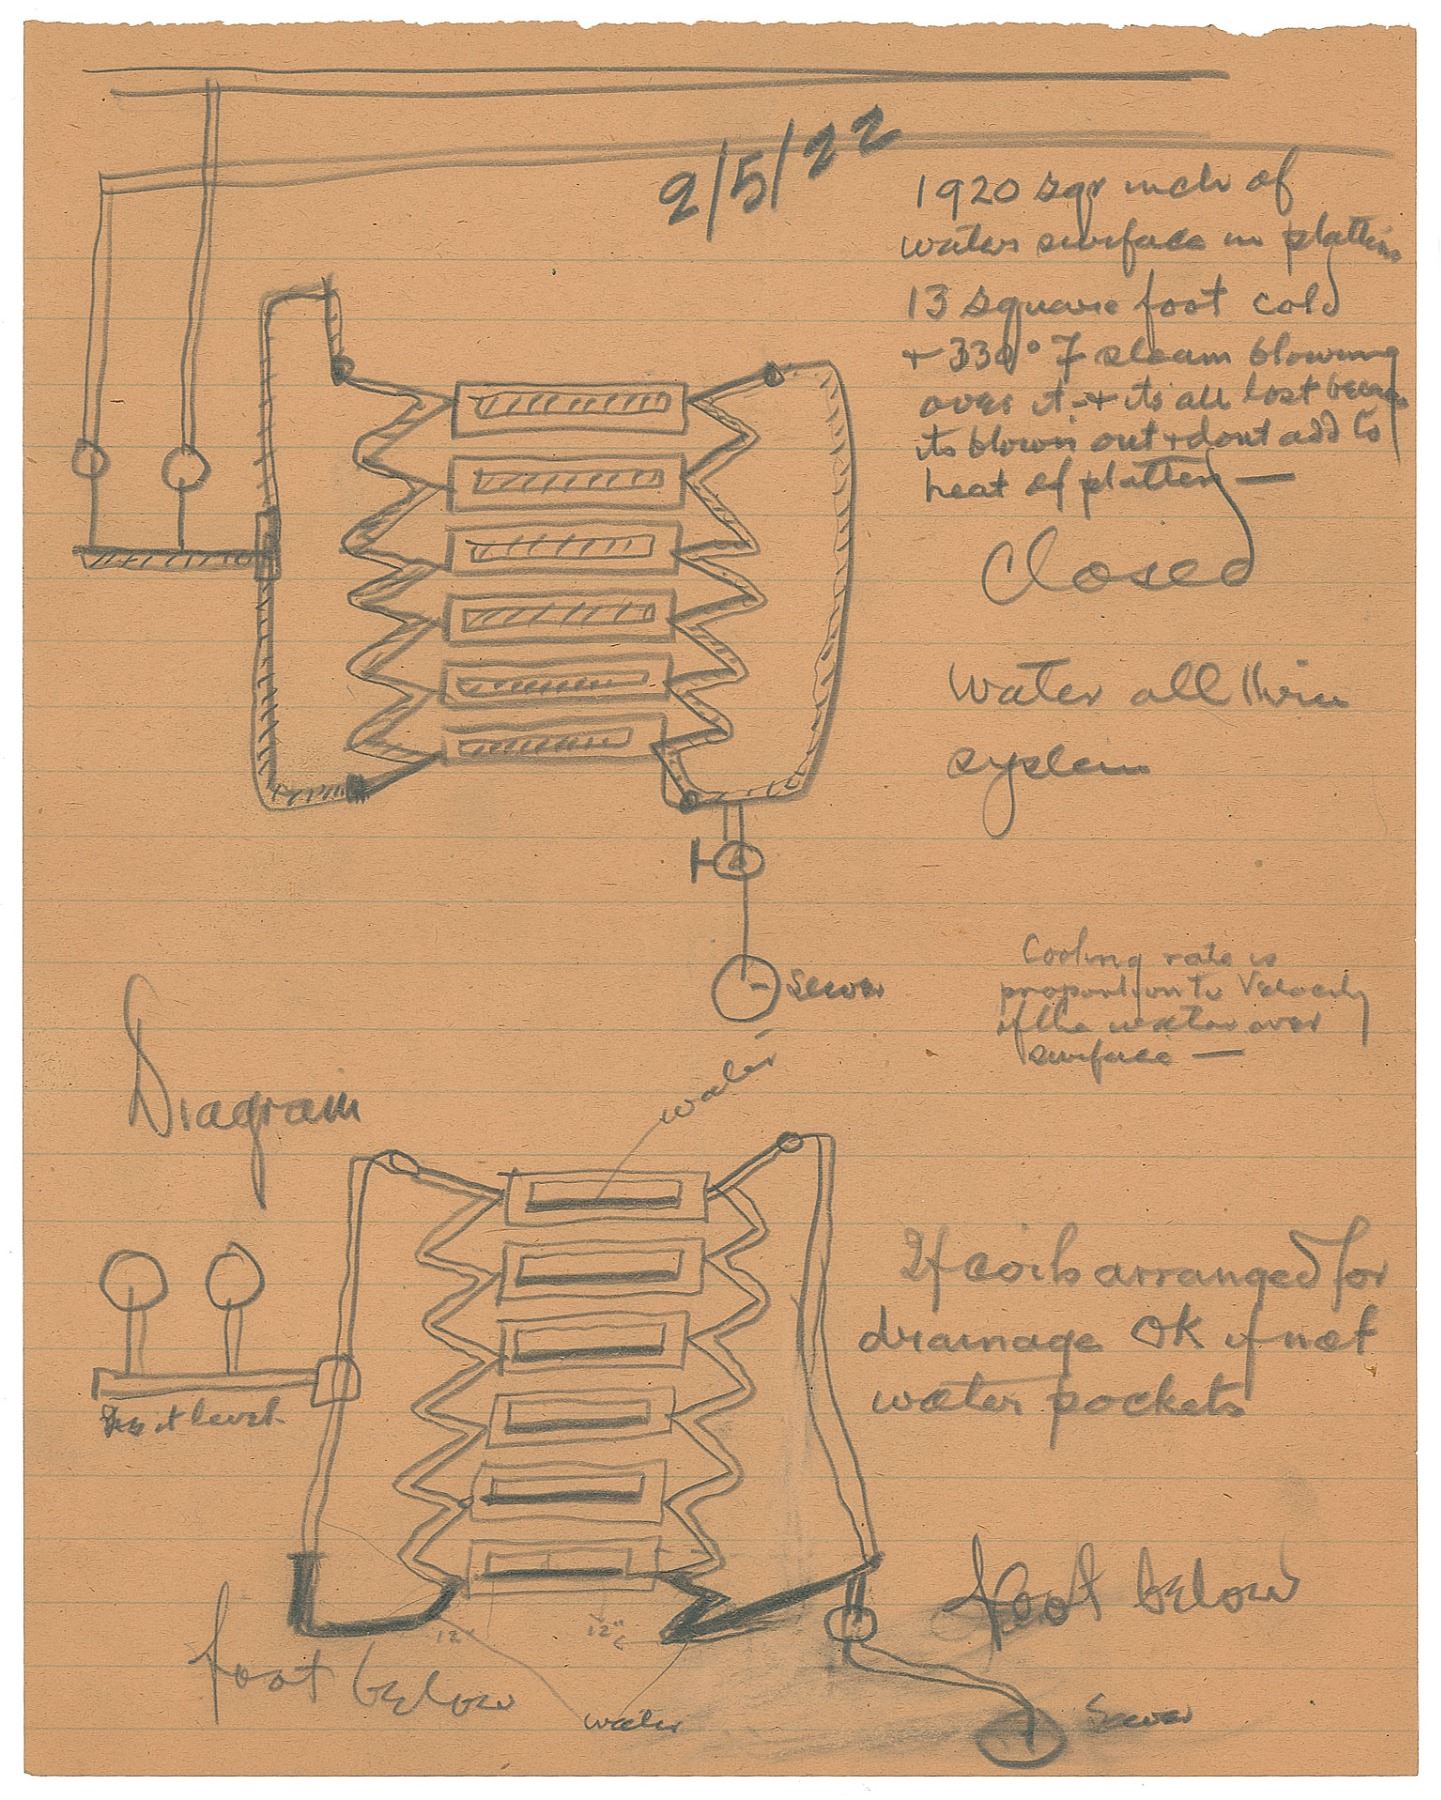 2/5/22
1920 sqr inch of
water surface in platten
13 square foot cold
+ 330° F steam blowing
over it + its all lost because
its blown out + dont add to
heat of platten —
Closed
Water all thru
system
Sewer
Cooling rate is
proportion to Velocity
of the water over
surface —
Diagram
water
If coils arranged for
drainage OK if not
water pockets
it level
foot below
12"
12"
foot below
water
Sewer